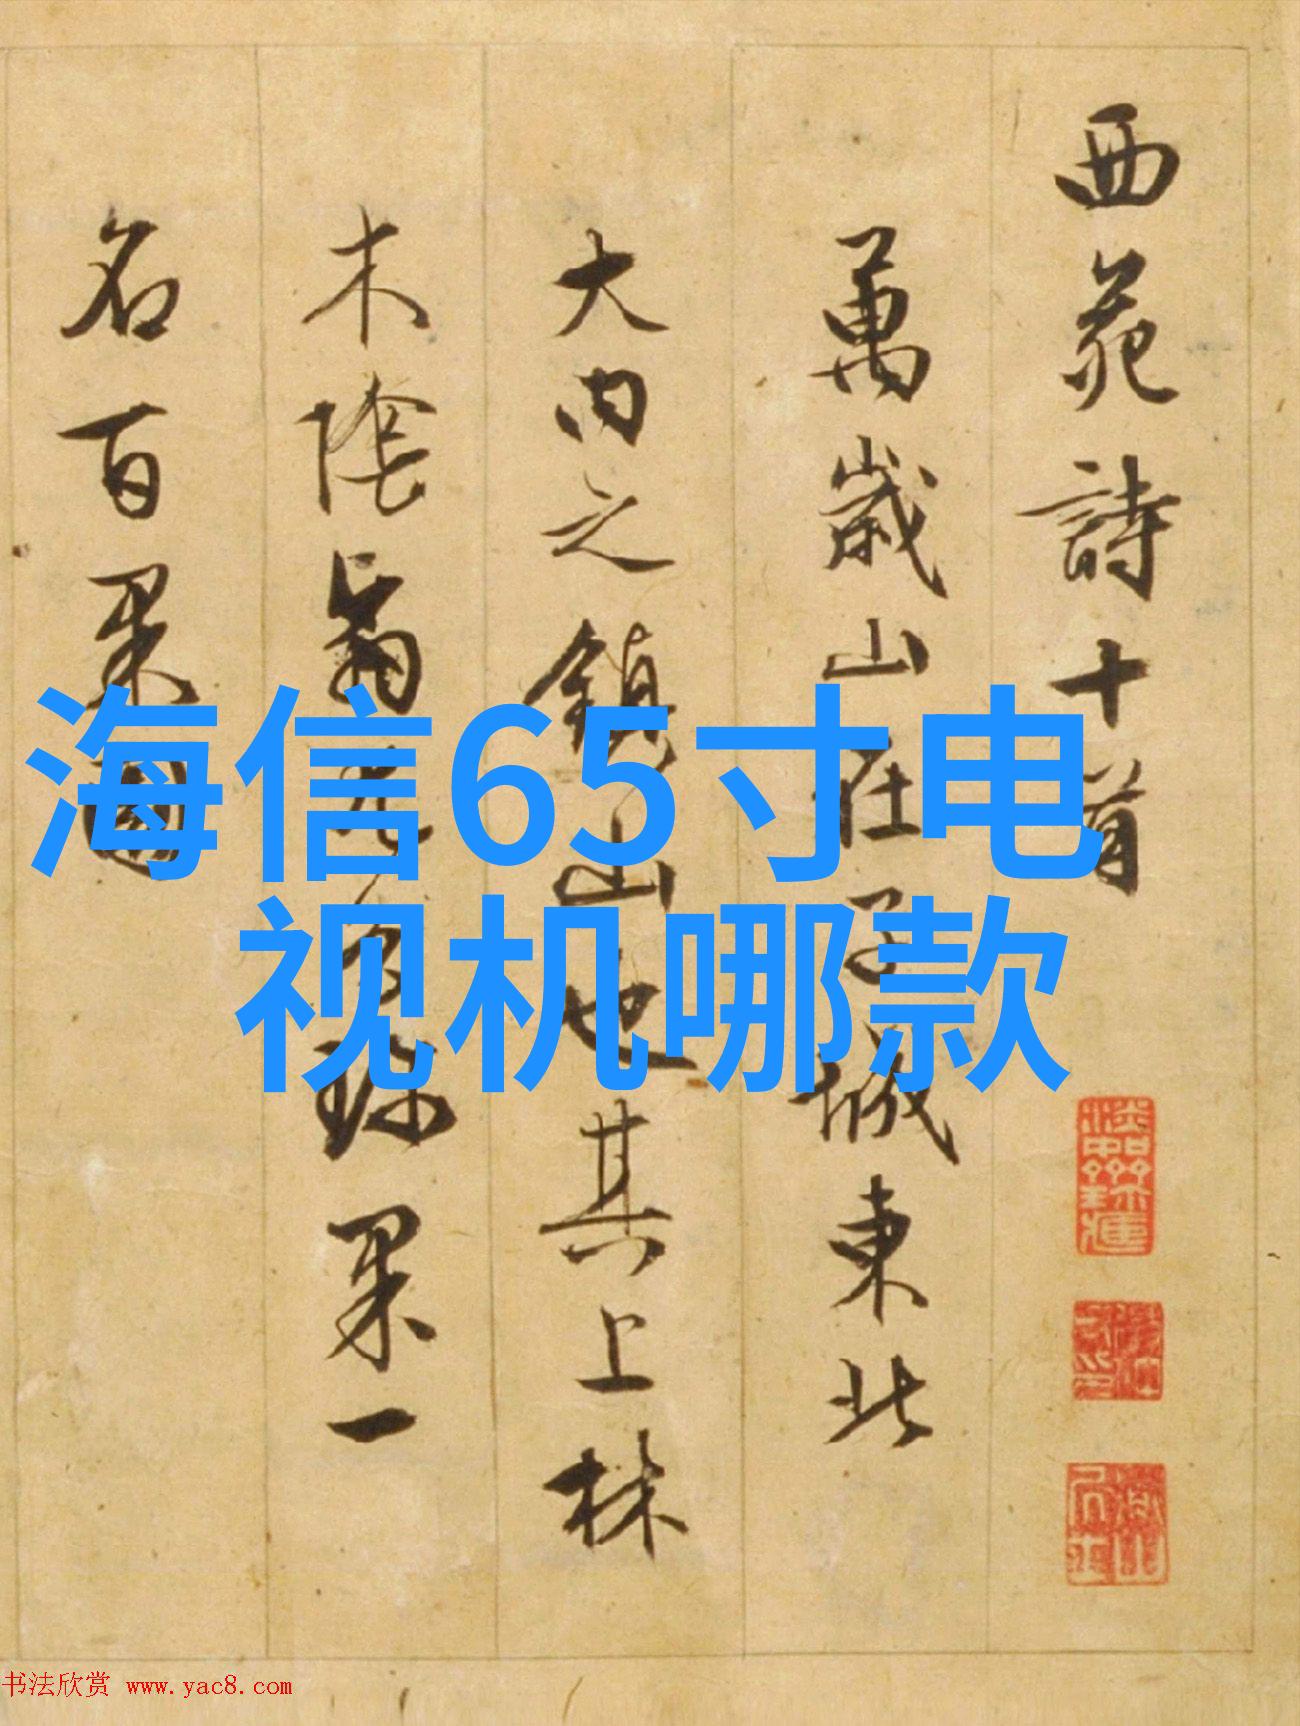 西苑詩十首
萬歲山在子城東北
大內之鎮山也其上林
木陰翳尤多珍果一
名百果園
海信65寸电
视机哪款
书法欣赏 www.yac8.com